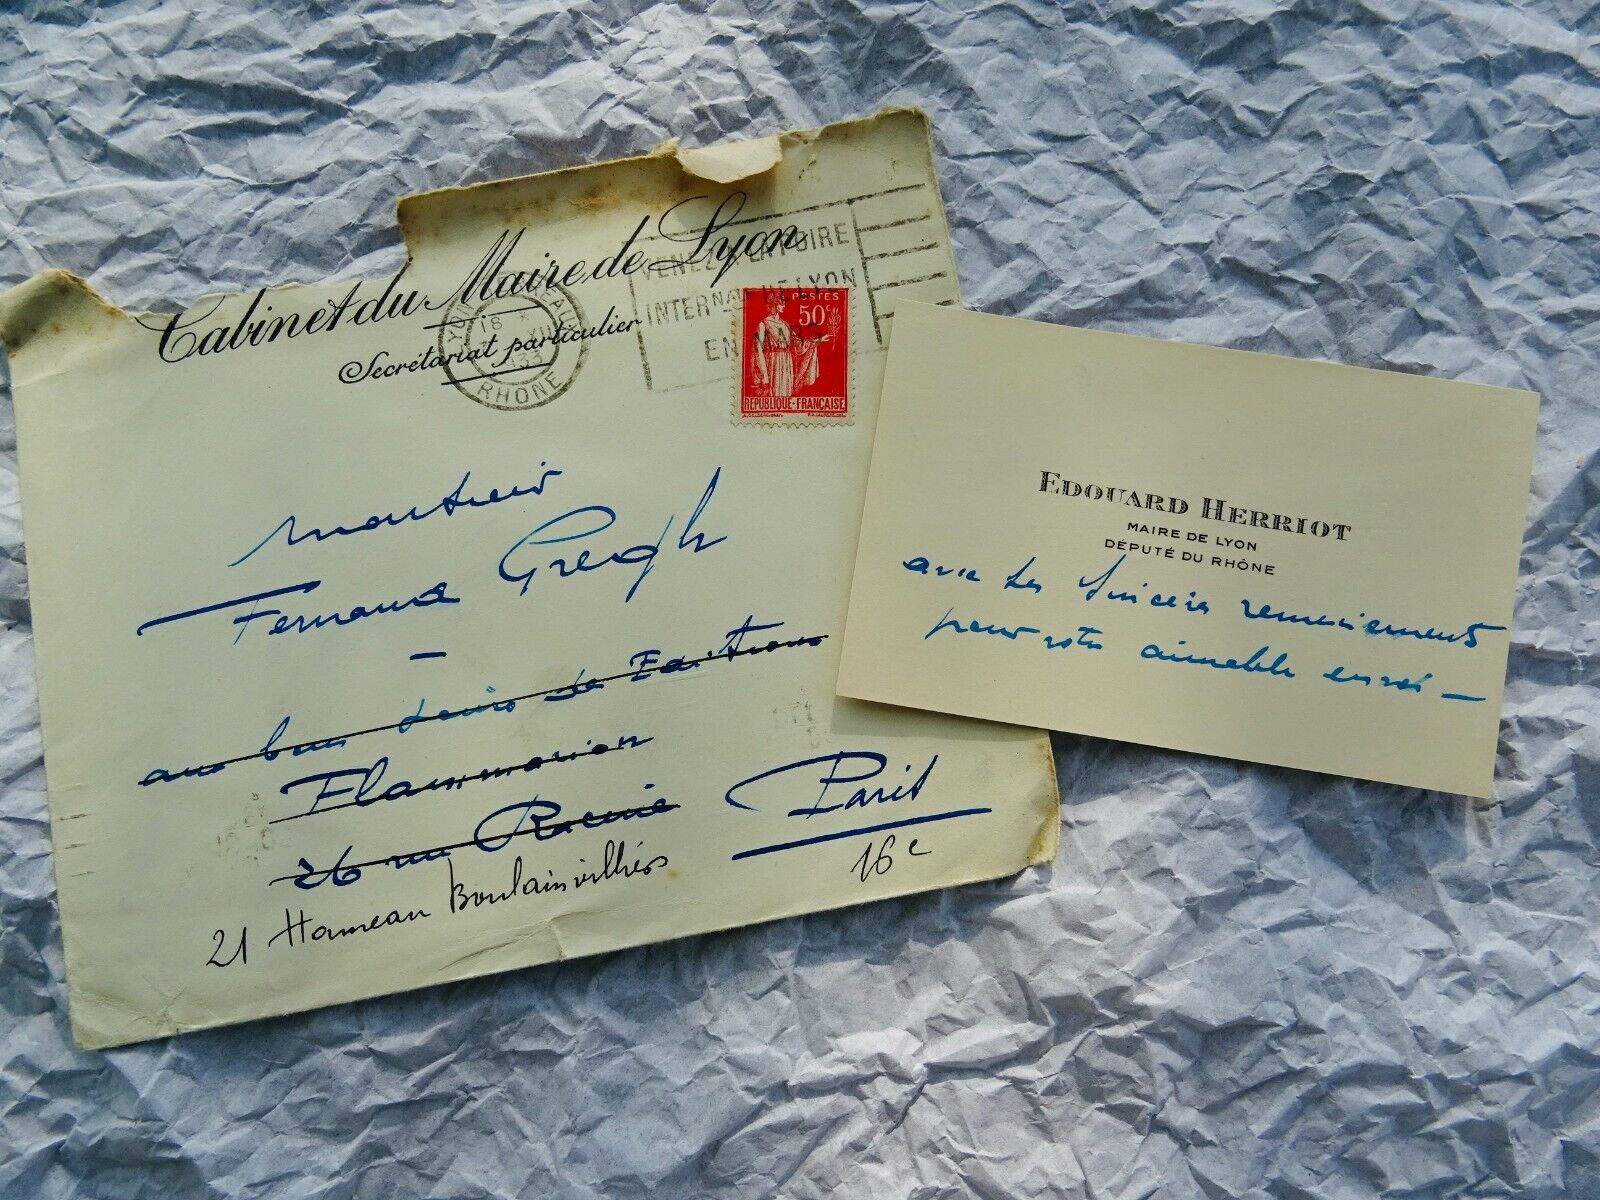 Cabinet du Maire de Lyon
Secrétariat particulier
LYON
18
XII
33
RHÔNE
VENEZ A LA FOIRE
INTERNALE DE LYON
EN MARS
POSTES
50c
REPUBLIQUE-FRANÇAISE
Monsieur
Fernand Gregh
-
aux bons soins des Editions
Flammarion
26 rue Racine
Paris
16e
21 Hameau Boulainvilliers
EDOUARD HERRIOT
MAIRE DE LYON
DÉPUTÉ DU RHÔNE
avec les sincères remerciements
pour votre aimable envoi -